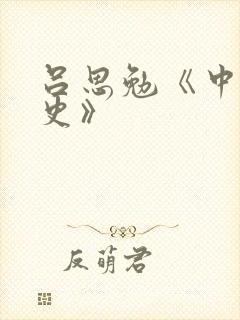 吕思勉《中
史》
反萌君